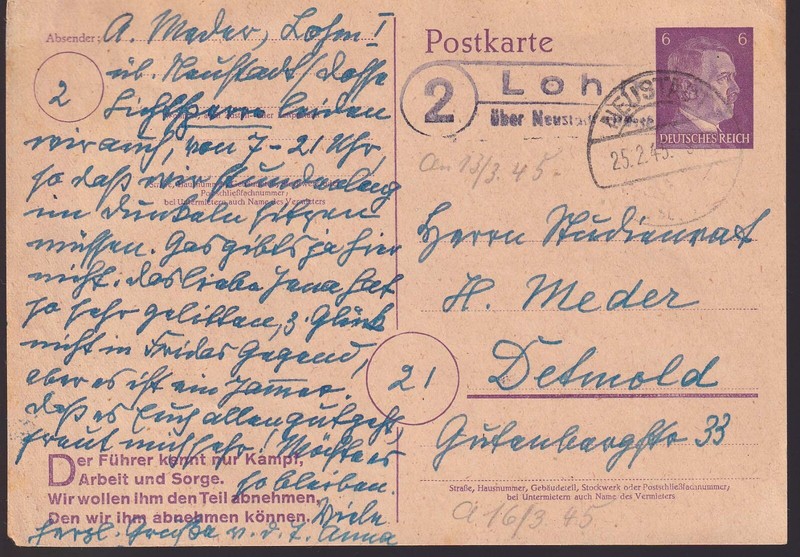 Absender: A. Meder, Lohm I
üb. Neustadt/Dosse
2
Lichtsperre leiden
wir auch, von 7-21 Uhr,
so daß wir stundenlang
im Dunkeln sitzen
müssen. Gas gibts ja hier
nicht. Das liebe Jena hat
so sehr gelitten, z. Glück
nicht in Fridas Gegend,
aber es ist ein Jammer.
Daß es Euch allen gut geht,
freut mich sehr! Möchte es
so bleiben.
Viele
herzl. Grüße v. d. T. Anna
Straße, Hausnummer, Gebäudeteil, Stockwerk oder
Postschließfachnummer;
bei Untermietern auch Name des Vermieters
Der Führer kennt nur Kampf,
Arbeit und Sorge.
Wir wollen ihm den Teil abnehmen,
Den wir ihm abnehmen können.
Postkarte
6 6
DEUTSCHES REICH
2 Loh
über Neustadt
NEUSTADT
25.2.45.
an 13/3.45.
Herrn Studienrat
H. Meder
21
Detmold
Gutenbergstr 33
Straße, Hausnummer, Gebäudeteil, Stockwerk oder Postschließfachnummer;
bei Untermietern auch Name des Vermieters
a 16/3.45.